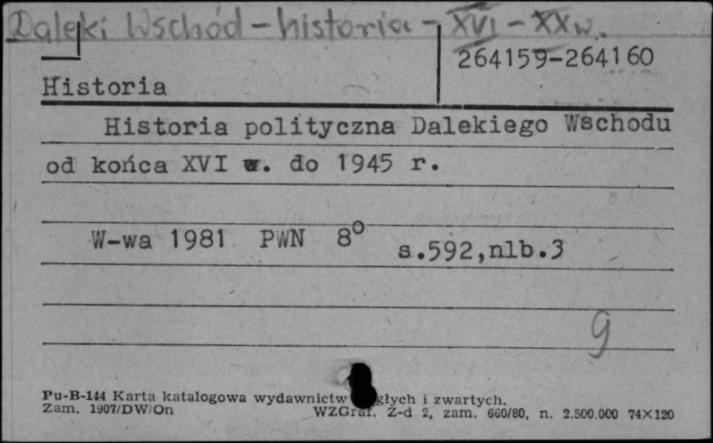 Daleki Wschód - historia - XVI - XX w.
264159-264160
Historia
Historia polityczna Dalekiego Wschodu
od końca XVI w. do 1945 r.
W-wa 1981 PWN 8°
s.592,nlb.3
9
Pu-B-144 Karta katalogowa wydawnictw głych i zwartych.
Zam. 1907/DW/On WZGraf. Z-d 2, zam. 660/80, n. 2.500.000 74×120